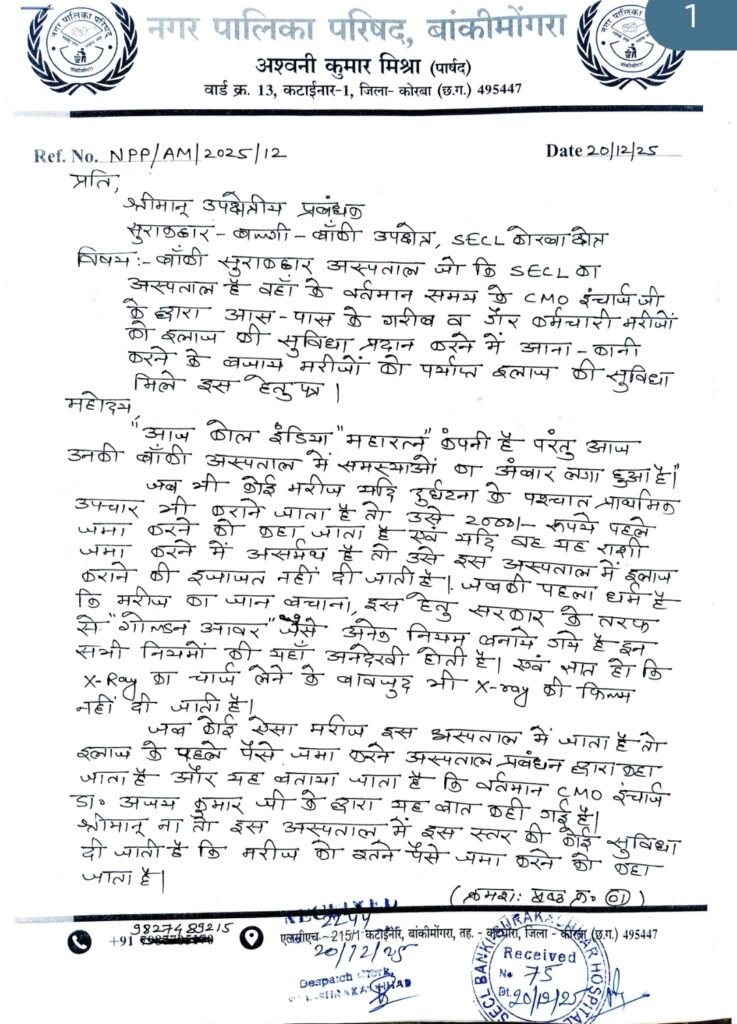 1
नगर पालिका परिषद, बांकीमोंगरा
अश्वनी कुमार मिश्रा (पार्षद)
वार्ड क्र. 13, कटाईनार-1, जिला- कोरबा (छ.ग.) 495447
Ref. No. NPP/AM/2025/12 Date 20/12/25
प्रति,
श्रीमान् उपक्षेत्रीय प्रबंधक
सुराकछार-बल्गी-बाँकी उपक्षेत्र, SECL कोरबा क्षेत्र
विषय:- बाँकी सुराकछार अस्पताल जो कि SECL का
अस्पताल है वहाँ के वर्तमान समय के CMO इंचार्ज जी
के द्वारा आस-पास के गरीब व गैर कर्मचारी मरीजों
को इलाज की सुविधा प्रदान करने में आना-कानी
करने के बजाय मरीजों को पर्याप्त इलाज की सुविधा
मिले इस हेतु पत्र।
महोदय,
"आज कोल इंडिया "महारत्न" कंपनी है परंतु आज
उनकी बाँकी अस्पताल में समस्याओं का अंबार लगा हुआ है।"
जब भी कोई मरीज यदि दुर्घटना के पश्चात प्राथमिक
उपचार भी कराने जाता है तो उसे 2000/- रूपये पहले
जमा करने को कहा जाता है एवं यदि वह यह राशी
जमा करने में असर्मथ है तो उसे इस अस्पताल में इलाज
कराने की इजाजत नहीं दी जाती है। जबकी पहला धर्म है
कि मरीज का जान बचाना, इस हेतु सरकार के तरफ
से "गोल्डन आवर" जैसे अनेक नियम बनाये गये है इन
सभी नियमों की यहाँ अनदेखी होती है। एवं ज्ञात हो कि
X-Ray का चार्ज लेने के बावजुद भी X-ray की फिल्म
नहीं दी जाती है।
जब कोई ऐसा मरीज इस अस्पताल में जाता है तो
इलाज के पहले पैसे जमा करने अस्पताल प्रबंधन द्वारा कहा
जाता है और यह बताया जाता है कि वर्तमान CMO इंचार्ज
डा० अजय कुमार जी के द्वारा यह बात कही गई है।
श्रीमान् ना तो इस अस्पताल में इस स्तर की कोई सुविधा
दी जाती है कि मरीज को इतने पैसे जमा करने को कहा
जाता है।
(क्रमश: पृष्ठ क्र. 01)
RECEIVED
2244
20/12/25
Despatch Clerk,
9827489215
+91
एलसीएच- 215/1 कटाईनार, बांकीमोंगरा, तह. - कटघोरा, जिला - कोरबा (छ.ग.) 495447
SECL BANKI SURAKACHHAR HOSPITAL
Received
No 75
Dt. 20/12/25